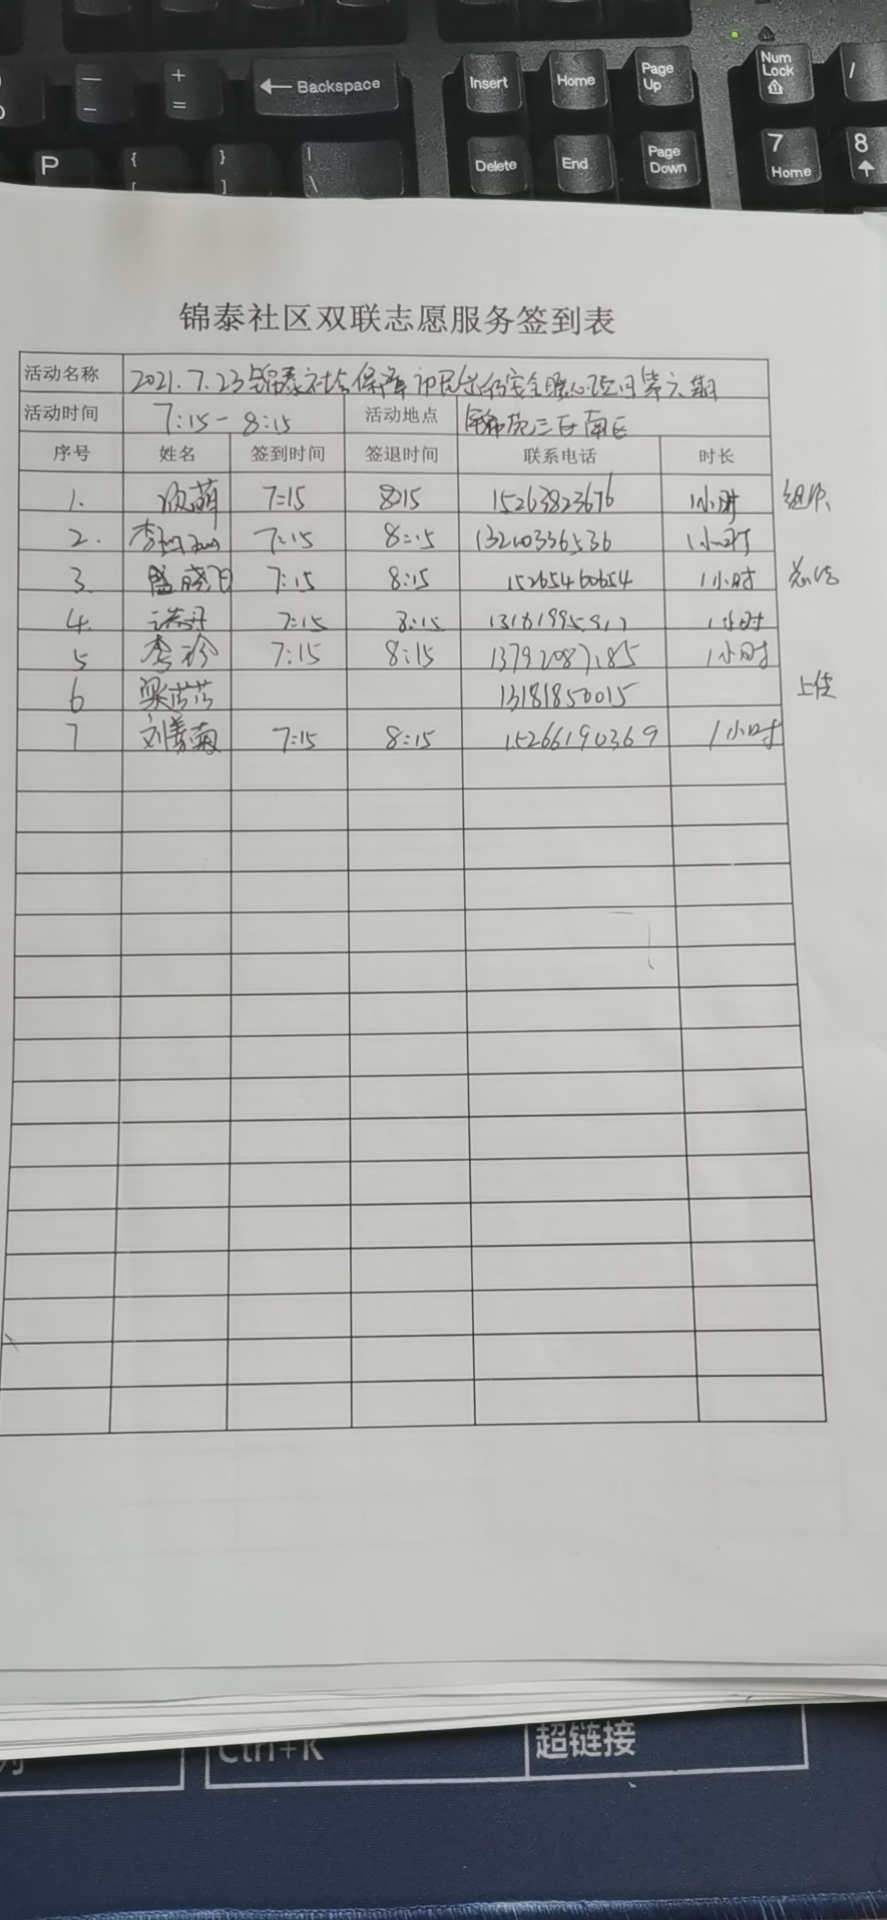 — + ← Backspace Insert Home Page Up Num Lock /
- =
P { } | Delete End Page Down 7 Home 8
[ ] \
锦泰社区双联志愿服务签到表
活动名称 2021.7.23锦泰社会保障市民出行安全暖心活动第六期
活动时间 7:15-8:15 活动地点 锦苑三区南区
序号 姓名 签到时间 签退时间 联系电话 时长
1. 萌 7:15 8:15 15263823676 1小时
2. 李 7:15 8:15 13210336536 1小时
3. 晓 7:15 8:15 15265460654 1小时 总结
4. 7:15 8:15 1小时
5 李珍 7:15 8:15 13792087185 1小时
6 梁芸芸 13181850015 上传
7 刘美菊 7:15 8:15 15266190369 1小时
Ctrl+K 超链接